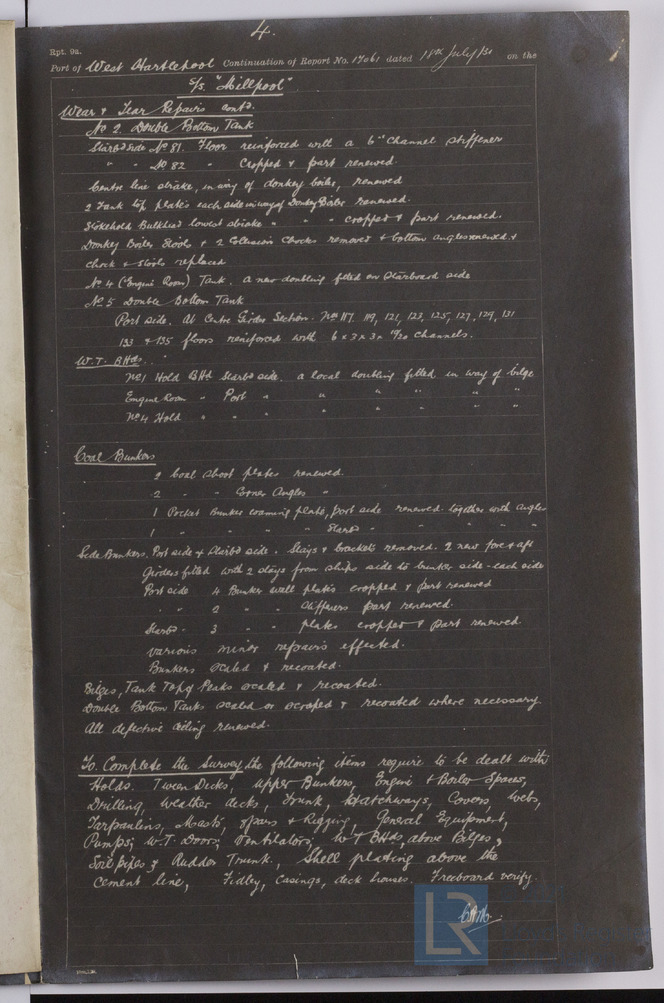 4.
Rpt. 9a.
Port of West Hartlepool Continuation of Report No. 17061 dated 18th July/30 on the
S/S. "Millpool"
Wear & Tear Repairs contd.
No 2. Double Bottom Tank
Starbd Side No 81. Floor reinforced with a 6" channel stiffener
" " No 82 " Cropped & part renewed
Centre line strake, in way of donkey boiler, renewed
2 Tank top plates each side in way of Donkey Boiler renewed.
Stokehold Bulkhead lowest strake " " " cropped & part renewed.
Donkey Boiler Stools & 2 Collision Chocks removed & bottom angles renewed &
chock & stools replaced
No 4 (Engine Room) Tank. a new doubling fitted on Starboard side
No 5 Double Bottom Tank
Port side. At Centre Girder Section. Nos 117. 119, 121, 123, 125, 127, 129, 131
133 & 135 floors reinforced with 6 x 3 x 3 x /20 channels.
W.T. BHds.
No 1 Hold BHd Starbd side. a local doubling fitted in way of bilge
Engine Room " Port " " " " " "
No 4 Hold " " " " " " " "
Coal Bunkers
2 Coal shoot plates renewed.
2 " " Corner Angles "
1 Pocket Bunker coaming plate, port side renewed together with angles
1 " " " " Starbd " " " " "
Side Bunkers. Port side & Starbd side. Stays & brackets removed. 2 new fore & aft
Girders fitted with 2 stays from ships side to bunker side - each side
Port side 4 Bunker wall plates cropped & part renewed
" " 2 " " stiffeners part renewed.
Starbd " 3 " " plates cropped & part renewed
various minor repairs effected.
Bunkers scaled & recoated.
Bilges, Tank Top & Peaks scaled & recoated.
Double Bottom Tanks scaled or scraped & recoated where necessary.
All defective ceiling renewed.
To Complete the Survey the following items require to be dealt with
Holds. Tween Decks, Upper Bunkers, Engine & Boiler Spaces,
Drilling, Weather decks, Trunk, Hatchways, Covers, Webs,
Tarpaulins, Masts, spars & Rigging, General Equipment,
Pumps, W.T. Doors, Ventilators, W T BHds, above Bilges,
Soil pipes & Rudder Trunk, Shell plating above the
cement line, Fidley, Casings, deck houses. Freeboard verify.
LR